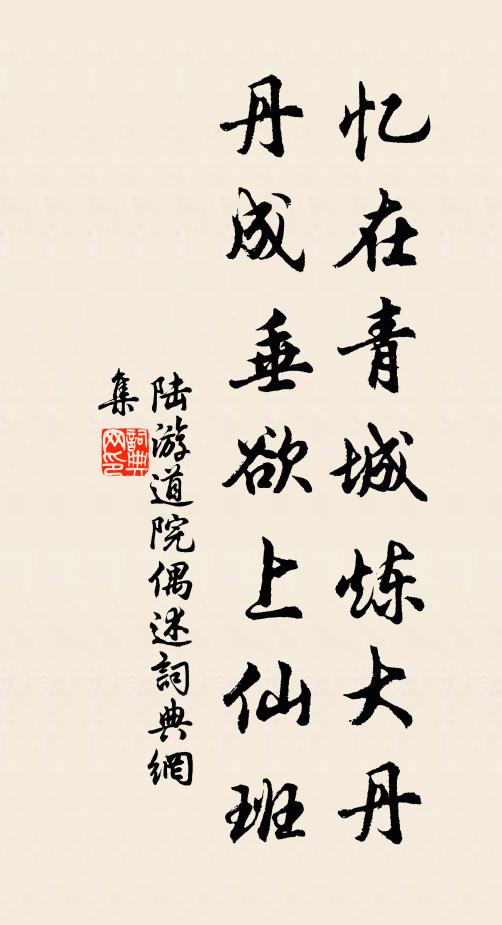 忆在青城炼大丹
丹成垂欲上仙班
陆游道院偶述詞典網
集
詞典网印